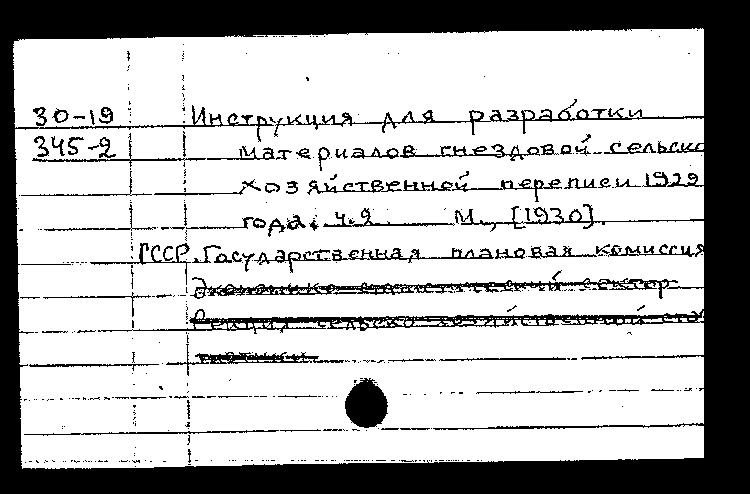 30-19 Инструкция для разработки
345-2 материалов гнездовой сельско
хозяйственной переписи 1929
года. ч.2 М., [1930].
СССР. Государственная плановая комиссия
Экономико-статистический сектор
Секция сельско-хозяйственной ста